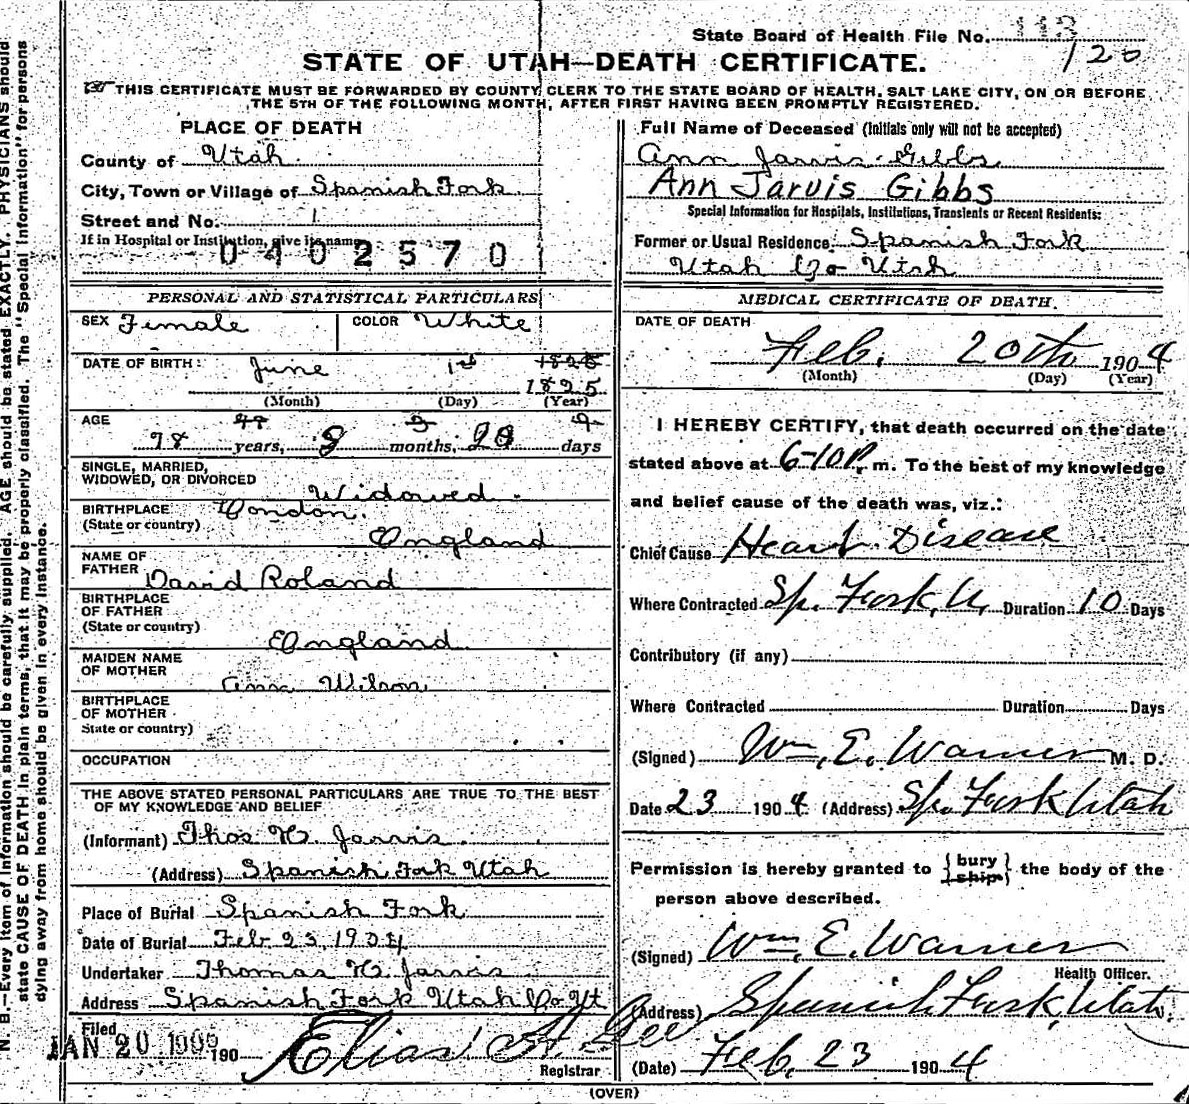 State Board of Health File No. 113
120
STATE OF UTAH—DEATH CERTIFICATE.
THIS CERTIFICATE MUST BE FORWARDED BY COUNTY CLERK TO THE STATE BOARD OF HEALTH, SALT LAKE CITY, ON OR BEFORE
THE 5TH OF THE FOLLOWING MONTH, AFTER FIRST HAVING BEEN PROMPTLY REGISTERED.
PLACE OF DEATH
County of Utah
City, Town or Village of Spanish Fork
Street and No. 1
If in Hospital or Institution, give its name
0402570
PERSONAL AND STATISTICAL PARTICULARS
SEX Female COLOR White
DATE OF BIRTH: June 1st
1825
(Month) (Day) (Year)
AGE
78 years, 8 months, days
SINGLE, MARRIED,
WIDOWED, OR DIVORCED Widowed
BIRTHPLACE London.
(State or country) England
NAME OF
FATHER David Roland
BIRTHPLACE
OF FATHER
(State or country) England
MAIDEN NAME
OF MOTHER Ann Wilson
BIRTHPLACE
OF MOTHER
State or country)
OCCUPATION
THE ABOVE STATED PERSONAL PARTICULARS ARE TRUE TO THE BEST
OF MY KNOWLEDGE AND BELIEF
(Informant) Thos H. Jarvis
(Address) Spanish Fork Utah
Place of Burial Spanish Fork
Date of Burial Feb 23, 1904
Undertaker Thomas H. Jarvis
Address Spanish Fork Utah Co Ut
Filed
JAN 20 1905 190 Elias A. Gee
Registrar
Full Name of Deceased (Initials only will not be accepted)
Ann Jarvis Gibbs
Ann Jarvis Gibbs
Special Information for Hospitals, Institutions, Transients or Recent Residents:
Former or Usual Residence Spanish Fork
Utah Co Utah
MEDICAL CERTIFICATE OF DEATH.
DATE OF DEATH
Feb. 20th 1904
(Month) (Day) (Year)
I HEREBY CERTIFY, that death occurred on the date
stated above at 6-10 P. m. To the best of my knowledge
and belief cause of the death was, viz.:
Chief Cause Heart Disease
Where Contracted Sp. Fork, U. Duration 10 Days
Contributory (if any)
Where Contracted Duration Days
(Signed) Wm. E. Warner M. D.
Date 23 1904 (Address) Sp. Fork Utah
Permission is hereby granted to { bury ship } the body of the
person above described.
(Signed) Wm. E. Warner
Health Officer.
(Address) Spanish Fork, Utah.
(Date) Feb. 23 1904
(OVER)
N. B.—Every item of information should be carefully supplied. AGE should be stated EXACTLY. PHYSICIANS should
state CAUSE OF DEATH in plain terms, that it may be properly classified. The "Special Information" for persons
dying away from home should be given in every instance.